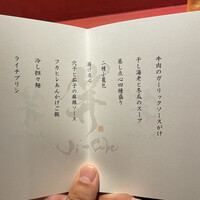 牛肉のガーリックソースがけ
干し海老と冬瓜のスープ
蒸し点心四種盛り
二種小籠包
揚げ点心
穴子と茄子の麻辣ソース
フカヒレあんかけご飯
冷し担々麺
ライチプリン